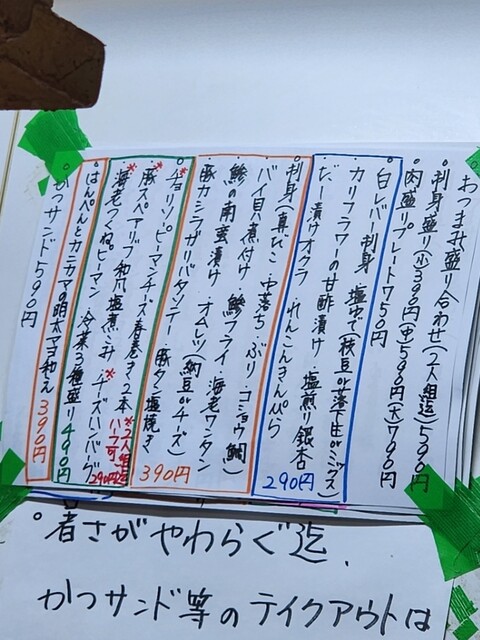 おつまみ盛り合わせ(2人組迄)590円
刺身盛り(小)390円(中)590円(大)790円
肉盛りプレート750円
白レバー刺身 塩ゆで(枝豆or落下生orミックス)
カリフラワーの甘酢漬け 塩煎り銀杏
だし漬けオクラ れんこんきんぴら 290円
刺身(真だこ・中落ち・ぶり・コショウ鯛)
バイ貝煮付け・鯵フライ・海老ワンタン
鯵の南蛮漬け ・オムレツ(納豆orチーズ)
豚カシラガリバタソテー・豚タン塩焼き 390円
チョリソ・ピーマンチーズ春巻き・2本
※豚スペアリブ和風塩煮こみ・※チーズハンバーグ ※2人組迄 ハーフ可 290円
※海老つくねピーマン・冷菜3種盛り 490円
はんぺんとカニカマの明太マヨ和え 390円
かつサンド590円
暑さがやわらぐ迄、
かつサンド等のテイクアウトは